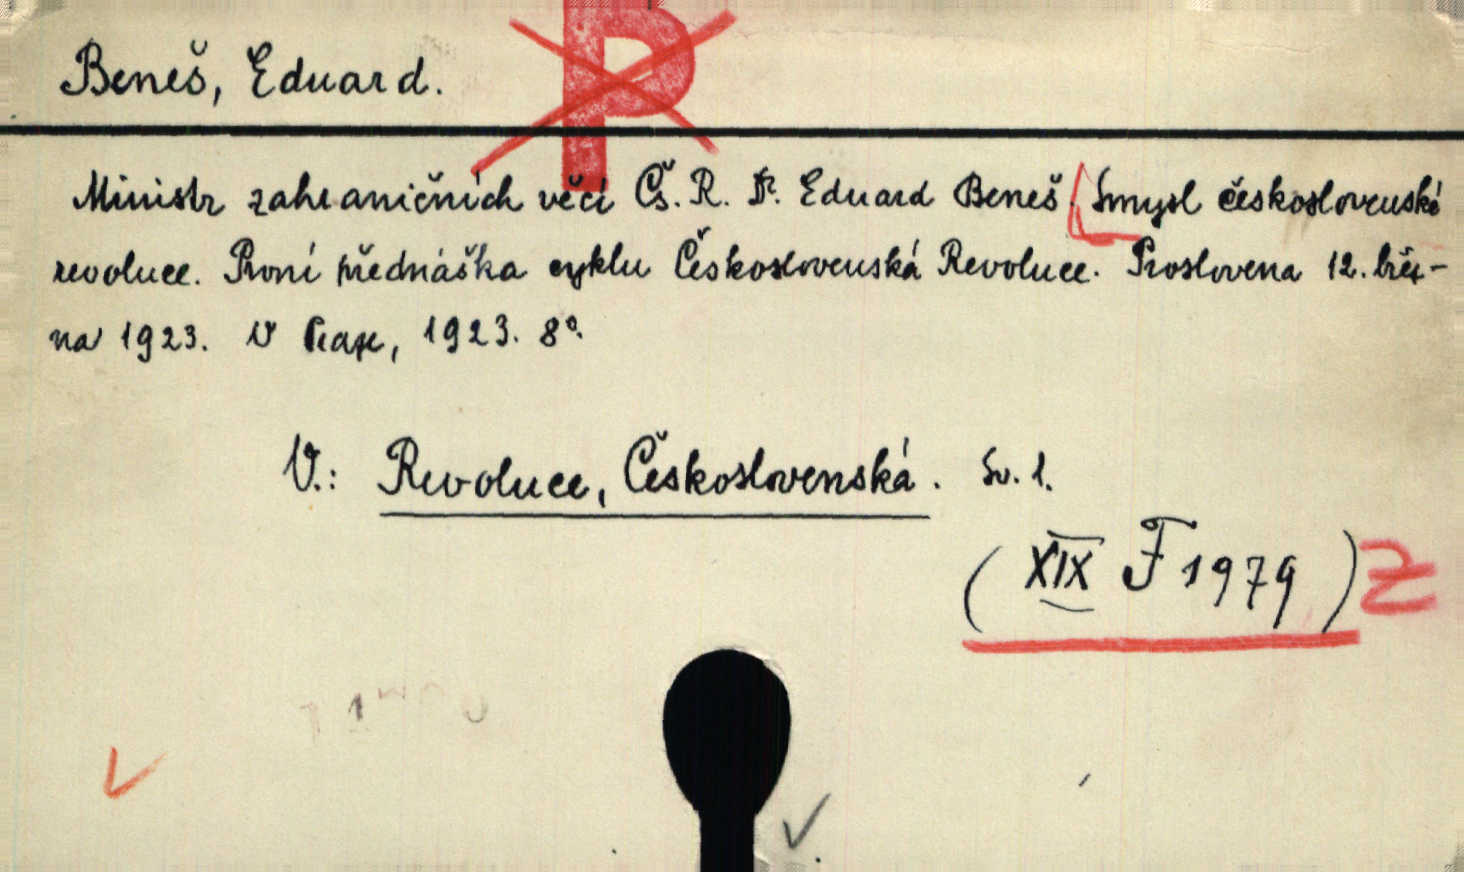 Beneš, Eduard.
P
Ministr zahraničních věcí Čs. R. Dr. Eduard Beneš. Smysl československé
revoluce. První přednáška cyklu Československá Revoluce. Proslovena 12. břez-
na 1923. V Praze, 1923. 8°.
V.: Revoluce, Československá. Sv. 1.
(XIX F 1979) Z